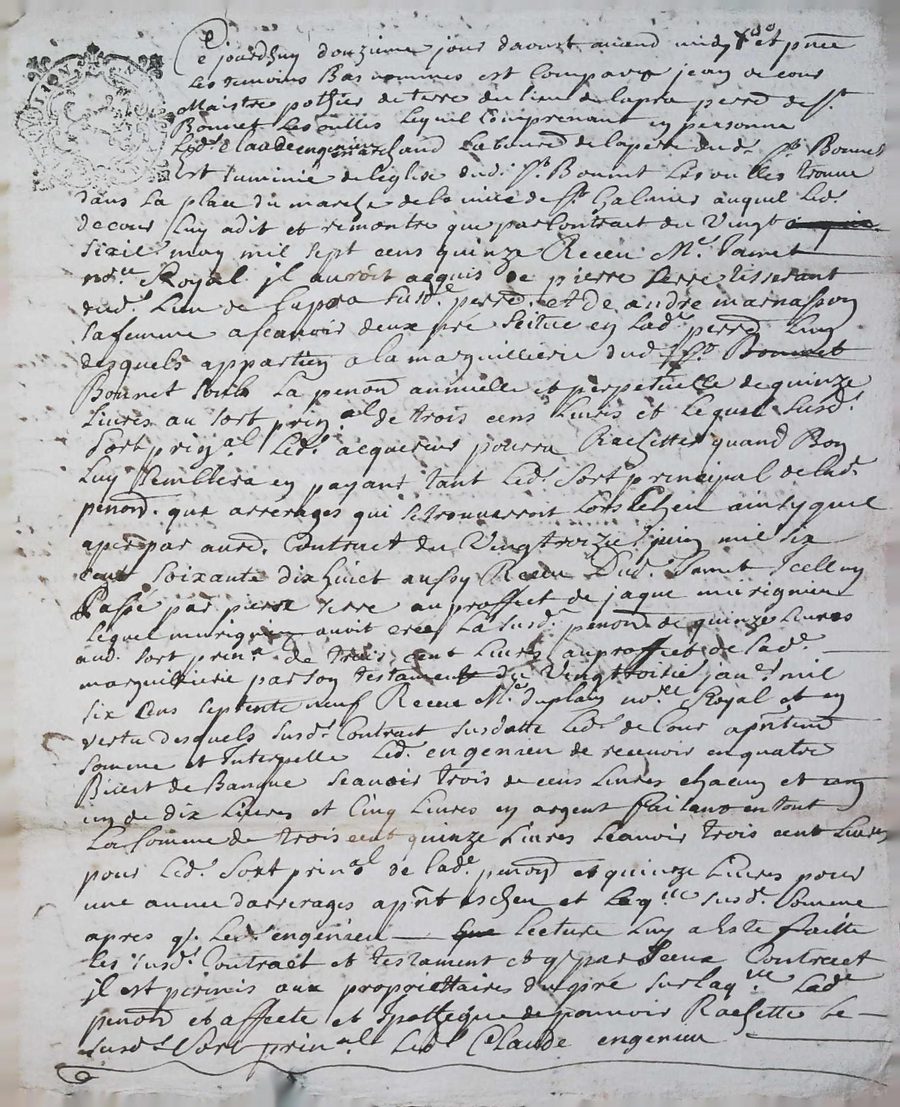 Ce jourdhuy douzieme jour daoust avand midy et pñce
Les temoins Bas nommes est Comparu jean de cour
Maistre pothier de terre du lieu de lapra perred de St
Bonnet Les oulles Lequil Comprenant en personne
Led. Claude engenieu marchand Laboured de laperr dud. St Bonnet
Est Luminie de leglise dud. St Bonnit Les oulles trouve
dans La place du marche de la ville de St Galmier auquel Led.
decour Luy adit et remontre que par Contract du Vingt
sixie may mil sept cens quinze Receu Me. Jamet
nore Royal jl auroit acquis de pierre Serre tisserant
dud. Lieu de Lapra susd. perred. et de andre marnasson
sa femme ascavoir deux pré scitue en Lade perred Lung
desquels appartien a la marguilliere dud. St Bonnet
Bonnet soubs La penon annuelle et perpetuelle de quinze
Livres au sort prinal de trois cens Livres et Lequel susd.
sort prinal Led. acquereur pourra Rachetter quand Bon
Luy semblera en payant tant Led. sort principal de lad.
penond. que arrerages qui se trouveront Lors Echeu ainsy quil
aper par aured. Contract du Vingtroizie juin mil six
cent soixante dixhuict aussy Receu Dud. Jamet Jcelluy
Passé par pierre serre au proffict de jaque murigneu
Lequel murigneu avoit cree La susd. penond. de quinzes Livres
aud. sort prinal de trois cent Livres auproffict de lad.
marguillierie par son testament du Vingttroitie janer. mil
six cens septente neuf Receu Me. duplain nore Royal et en
vertu desquels susd. Contract susdatte Led. de Cour aprñtemt
somme et Interpelle Led. engenieu de recevoir en quatre
Biliet de Banque scavoir trois de cens Livres chacun et
un de dix Livres et Cinq Livres en argent faisant en tout
La somme de trois cent quinze Livres scavoir trois cent Livres
pour Led. sort prinal de lade penond et quinze Livres pour
une annee darrerages aprñt escheu et Leqlle susd. somme
apres q. Led. engenieu Lecture Luy a Esté faitte
des susd. Contract et testament et q. par Jceux Contract
jl est permis aux propriettaires du pré sur laqlle Lade
penond et affecte et Jpotteque de pouvoir Rachette Le
susd. sort prinal Led. Claude engenieu